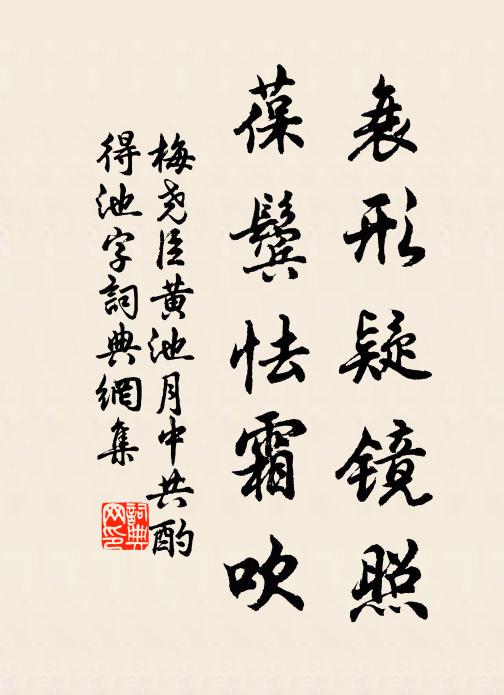 衰形疑镜照
葆鬓怯霜吹
梅尧臣黄池月中共酌
得池字詞典網集
詞典网印